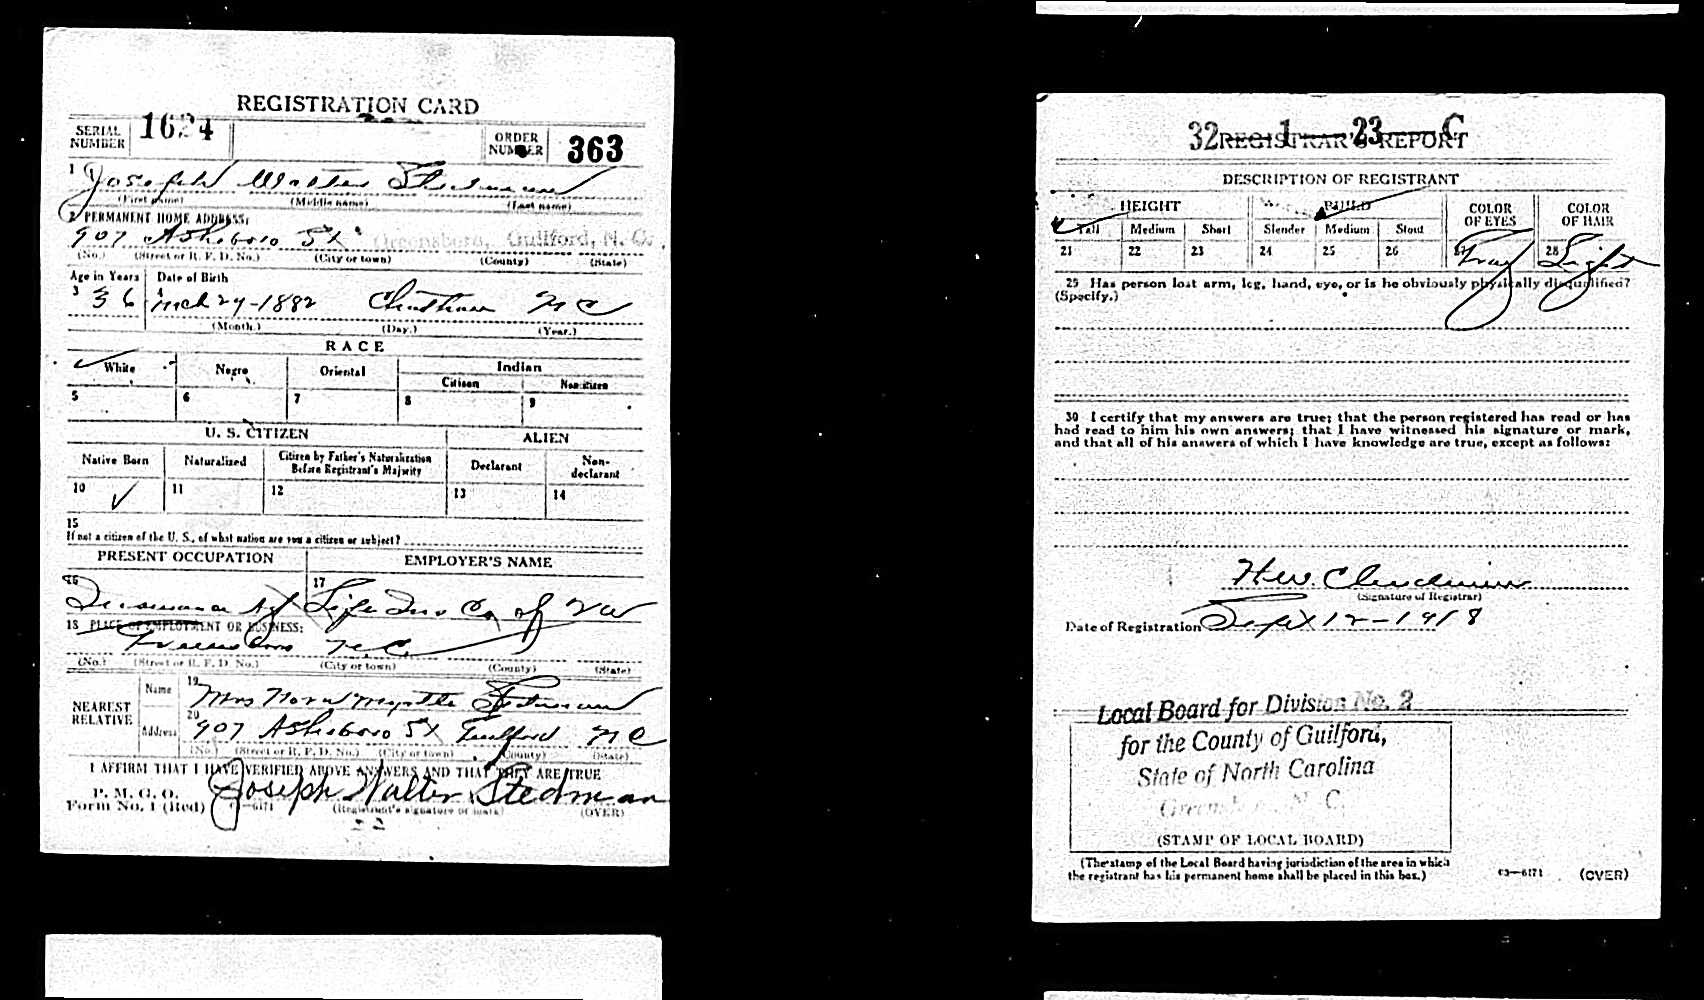 REGISTRATION CARD
SERIAL NUMBER 1624
ORDER NUMBER 363
1 Joseph Walter Stedman
(First name) (Middle name) (Last name)
2 PERMANENT HOME ADDRESS:
907 Asheboro St Greensboro, Guilford, N. C.
(No.) (Street or R. F. D. No.) (City or town) (County) (State)
Age in Years Date of Birth
3 36 4 Mch 29-1882 Chatham N C
(Month.) (Day.) (Year.)
RACE
White Negro Oriental Indian
Citizen Noncitizen
5 6 7 8 9
U. S. CITIZEN ALIEN
Native Born Naturalized Citizen by Father's Naturalization Before Registrant's Majority Declarant Non-declarant
10 ✓ 11 12 13 14
15
If not a citizen of the U. S., of what nation are you a citizen or subject?
PRESENT OCCUPATION EMPLOYER'S NAME
16 Insurance Agt 17 Life Ins Co of Va
18 PLACE OF EMPLOYMENT OR BUSINESS:
Greensboro N.C.
(No.) (Street or R. F. D. No.) (City or town) (County) (State)
NEAREST RELATIVE
Name 19 Mrs Nora Myrtle Stedman
Address 20 907 Asheboro St Guilford N C
(No.) (Street or R. F. D. No.) (City or town) (County) (State)
I AFFIRM THAT I HAVE VERIFIED ABOVE ANSWERS AND THAT THEY ARE TRUE
P. M. G. O.
Form No. 1 (Red) Joseph Walter Stedman
(Registrant's signature or mark) (OVER)
32 1 23 C
REGISTRAR'S REPORT
DESCRIPTION OF REGISTRANT
HEIGHT BUILD COLOR OF EYES COLOR OF HAIR
Tall Medium Short Slender Medium Stout
21 22 23 24 25 26 27 Gray 28 Light
29 Has person lost arm, leg, hand, eye, or is he obviously physically disqualified?
(Specify.)
30 I certify that my answers are true; that the person registered has read or has
had read to him his own answers; that I have witnessed his signature or mark,
and that all of his answers of which I have knowledge are true, except as follows:
H.W. Clendenin
(Signature of Registrar)
Date of Registration Sept 12-1918
Local Board for Division No. 2
for the County of Guilford,
State of North Carolina
Greensboro, N. C.
(STAMP OF LOCAL BOARD)
(The stamp of the Local Board having jurisdiction of the area in which
the registrant has his permanent home shall be placed in this box.)
03—6171 (OVER)